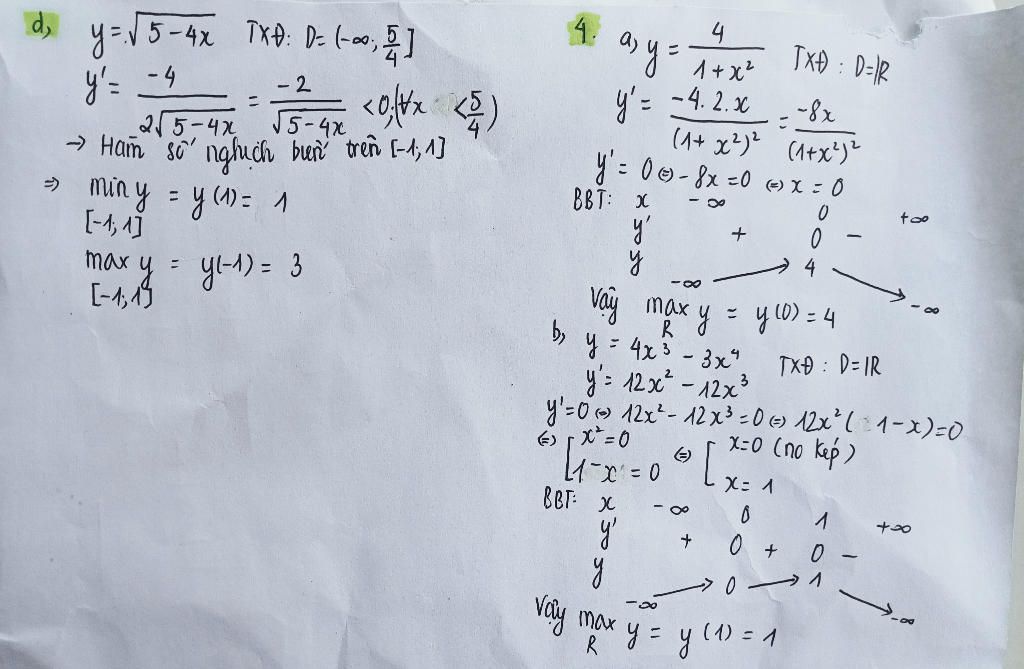 d, y = √5-4x TXĐ: D= (-∞; 5/4]
y' = -4/2√5-4x = -2/√5-4x < 0; (∀x < 5/4)
→ Hàm số nghịch biến trên [-1; 1]
⇒ min y = y(1) = 1
[-1; 1]
max y = y(-1) = 3
[-1; 1]
4. a, y = 4/1+x² TXĐ : D=ℝ
y' = -4.2.x/(1+x²)² = -8x/(1+x²)²
y' = 0 ⇔ -8x = 0 ⇔ x = 0
BBT: x -∞ 0 +∞
y' + 0 -
y -∞ → 4 → -∞
Vậy max y = y(0) = 4
R
b, y = 4x³ - 3x⁴ TXĐ : D=ℝ
y' = 12x² - 12x³
y'=0 ⇔ 12x² - 12x³ = 0 ⇔ 12x²(1-x)=0
⇔ [ x²=0 ⇔ [ x=0 (no kép)
1-x = 0 x = 1
BBT: x -∞ 0 1 +∞
y' + 0 + 0 -
y -∞ → 0 → 1 → -∞
Vậy max y = y(1) = 1
R